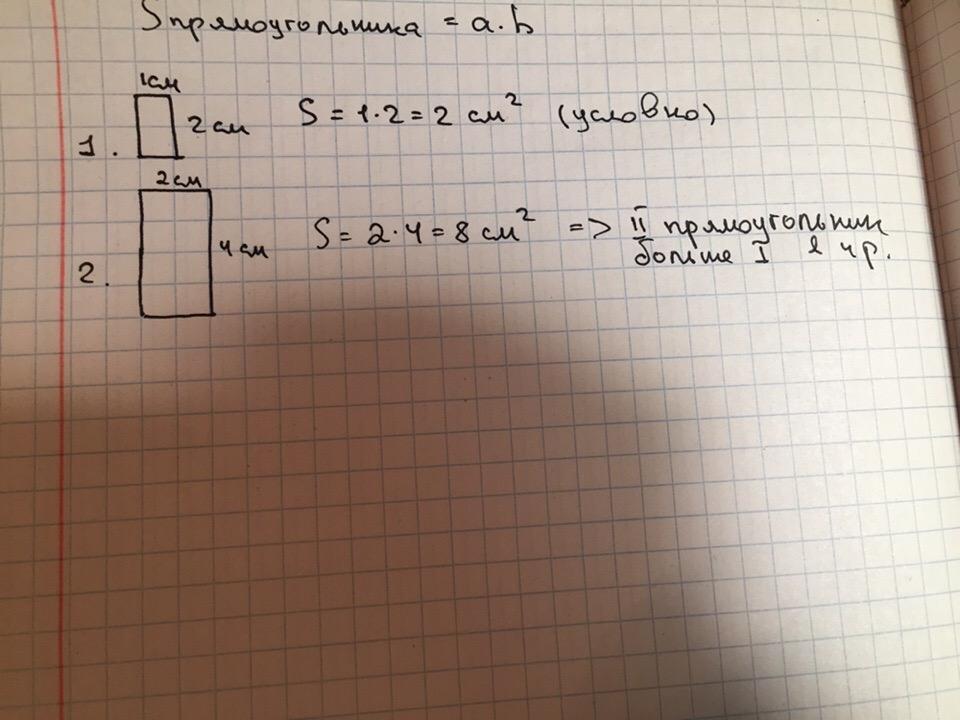 Sпрямоугольника = a·b
1см
1. 2см S = 1·2 = 2 см² (условно)
2см
2. 4см S = 2·4 = 8 см² => II прямоугольник
больше I в 4 р.